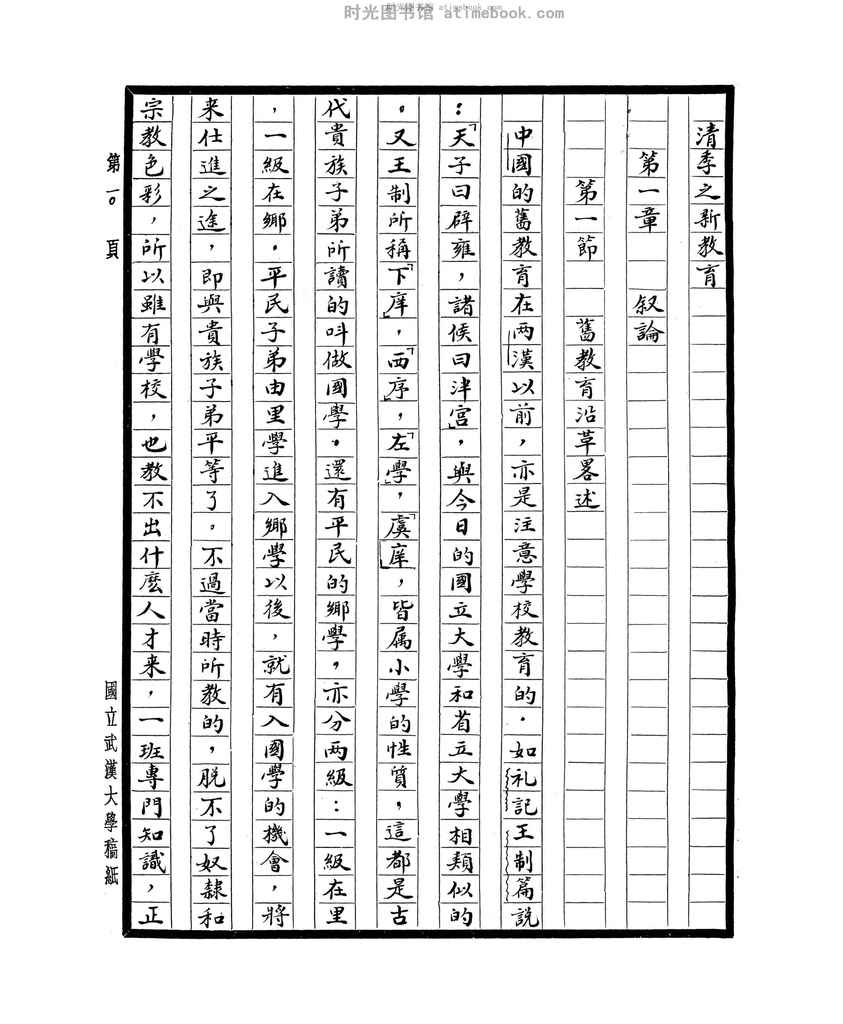 时光图书馆 atimebook.com
时光图书馆 atimebook.com
清季之新教育
第一章　叙論
第一節　舊教育沿革畧述
中國的舊教育在两漢以前，亦是注意學校教育的．如礼記王制篇説
：「天子曰辟雍，諸候曰泮宮」，與今日的國立大學和省立大學相類似的
。又王制所稱「下庠」，「西序」，「左學」，「虞庠」，皆属小學的性質，這都是古
代貴族子弟所讀的叫做國學。還有平民的鄉學，亦分两級：一級在里
，一級在鄉．平民子弟由里學進入鄉學以後，就有入國學的機會，將
来仕進之途，即與貴族子弟平等了。不過當時所教的，脱不了奴隸和
宗教色彩，所以雖有學校，也教不出什麽人才来，一班專門知識，正
第一〇頁
國立武漢大學稿紙